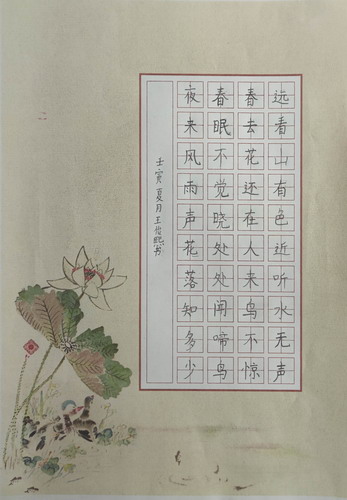 远看山有色近听水无声
春去花还在人来鸟不惊
春眠不觉晓处处闻啼鸟
夜来风雨声花落知多少
壬寅夏月王熙书